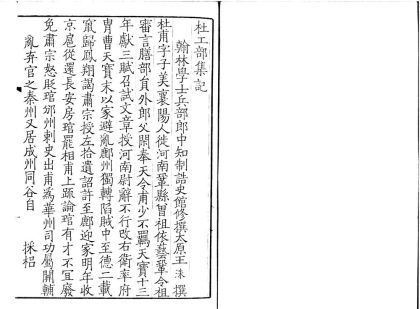 杜工部集記
翰林學士兵部郎中知制誥史館修撰太原王洙撰
杜甫字子美襄陽人徙河南鞏縣曾祖依藝鞏令祖
審言膳部員外郎父閑奉天令甫少不羈天寶十三
年獻三賦召試文章授河南尉辭不行改右衛率府
胄曹天寶末以家避亂鄜州獨轉陷賊中至德二載
竄歸鳳翔謁肅宗授左拾遺詔許至鄜迎家明年收
京扈從還長安房琯罷相甫上疏論琯有才不宜廢
免肅宗怒貶琯邠州刺史出甫爲華州司功屬關輔
亂弃官之秦州又居成州同谷自
採梠